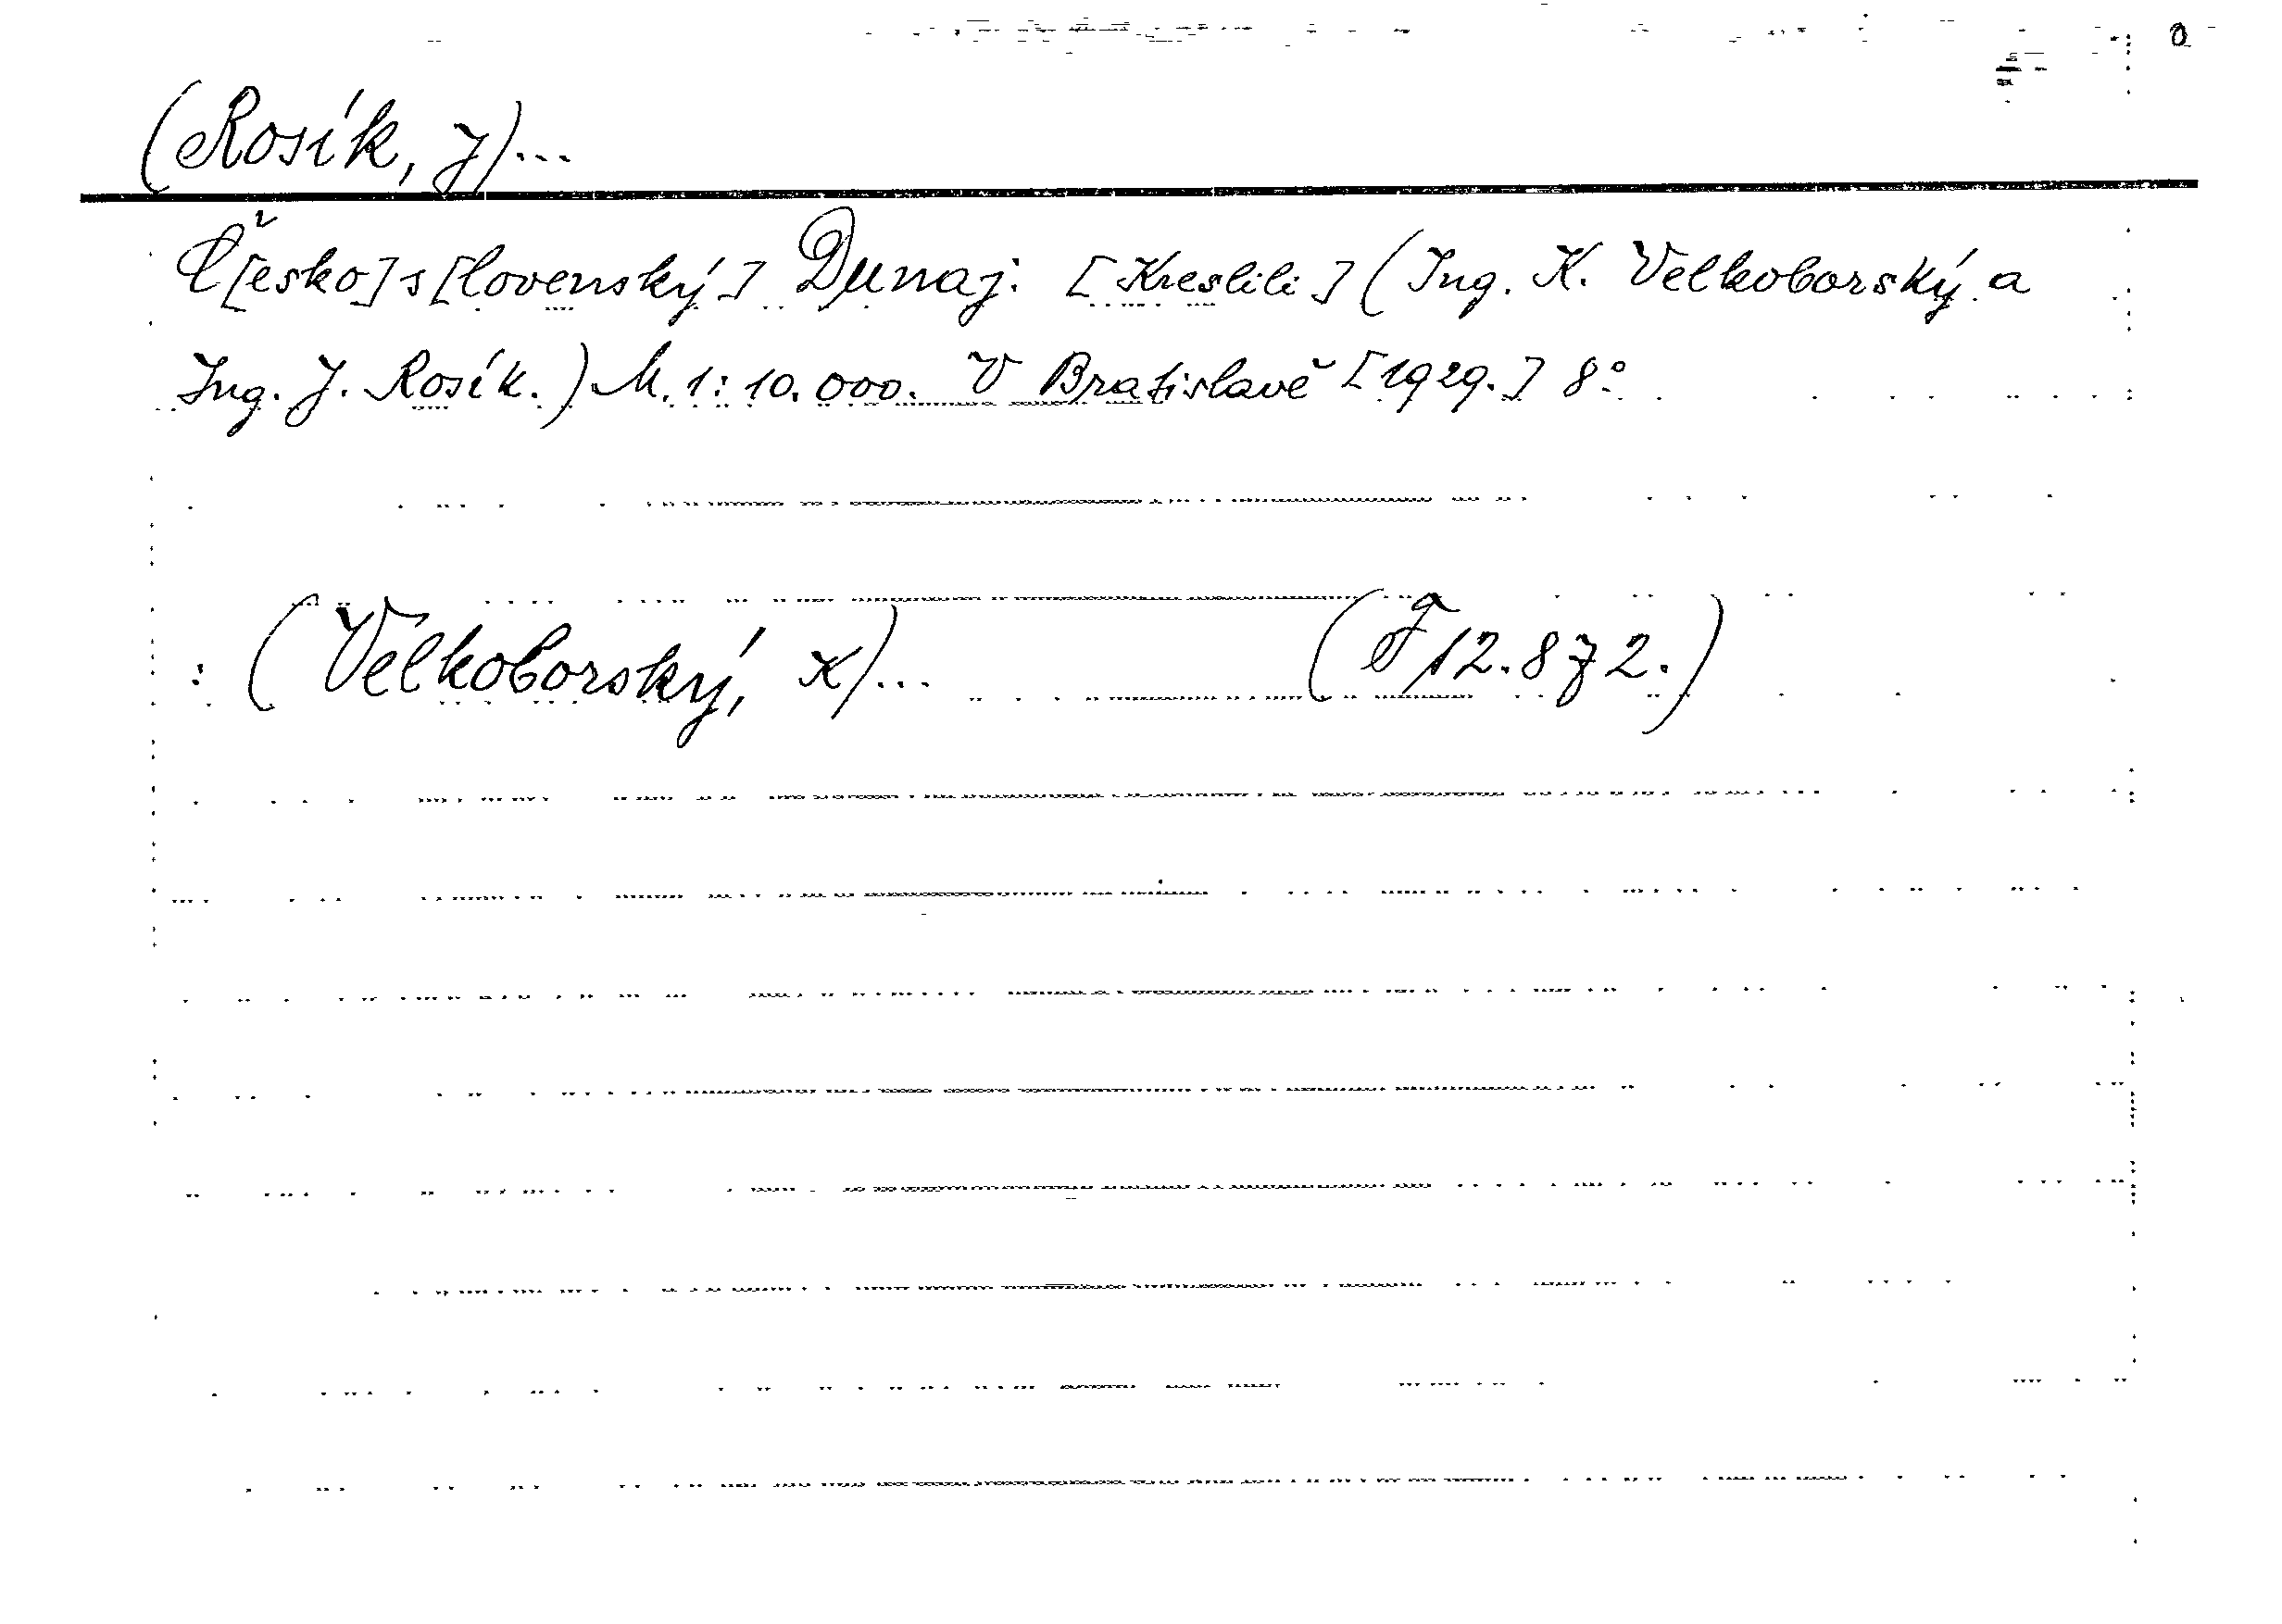 (Rosík, J)...
Č[esko]s[lovenský] Dunaj. [Kreslili] (Ing. K. Velkoborský a
Ing. J. Rosík.) M. 1:10.000. V Bratislavě [1929.] 8°
: (Velkoborský, K)... (F 12.872.)